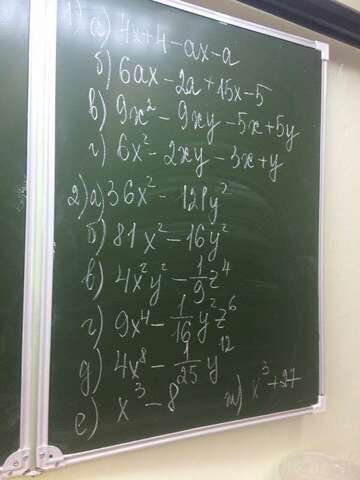 1) а) 4x+4-ax-a
б) 6ax-2a+15x-5
в) 9x²-9xy-5x+5y
г) 6x²-2xy-3x+y
2) а) 36x²-121y²
б) 81x²-16y²
в) 4x²y²-1/9z⁴
г) 9x⁴-1/16y²z⁶
д) 4x⁸-1/25y¹²
е) x³-8 ж) x³+27